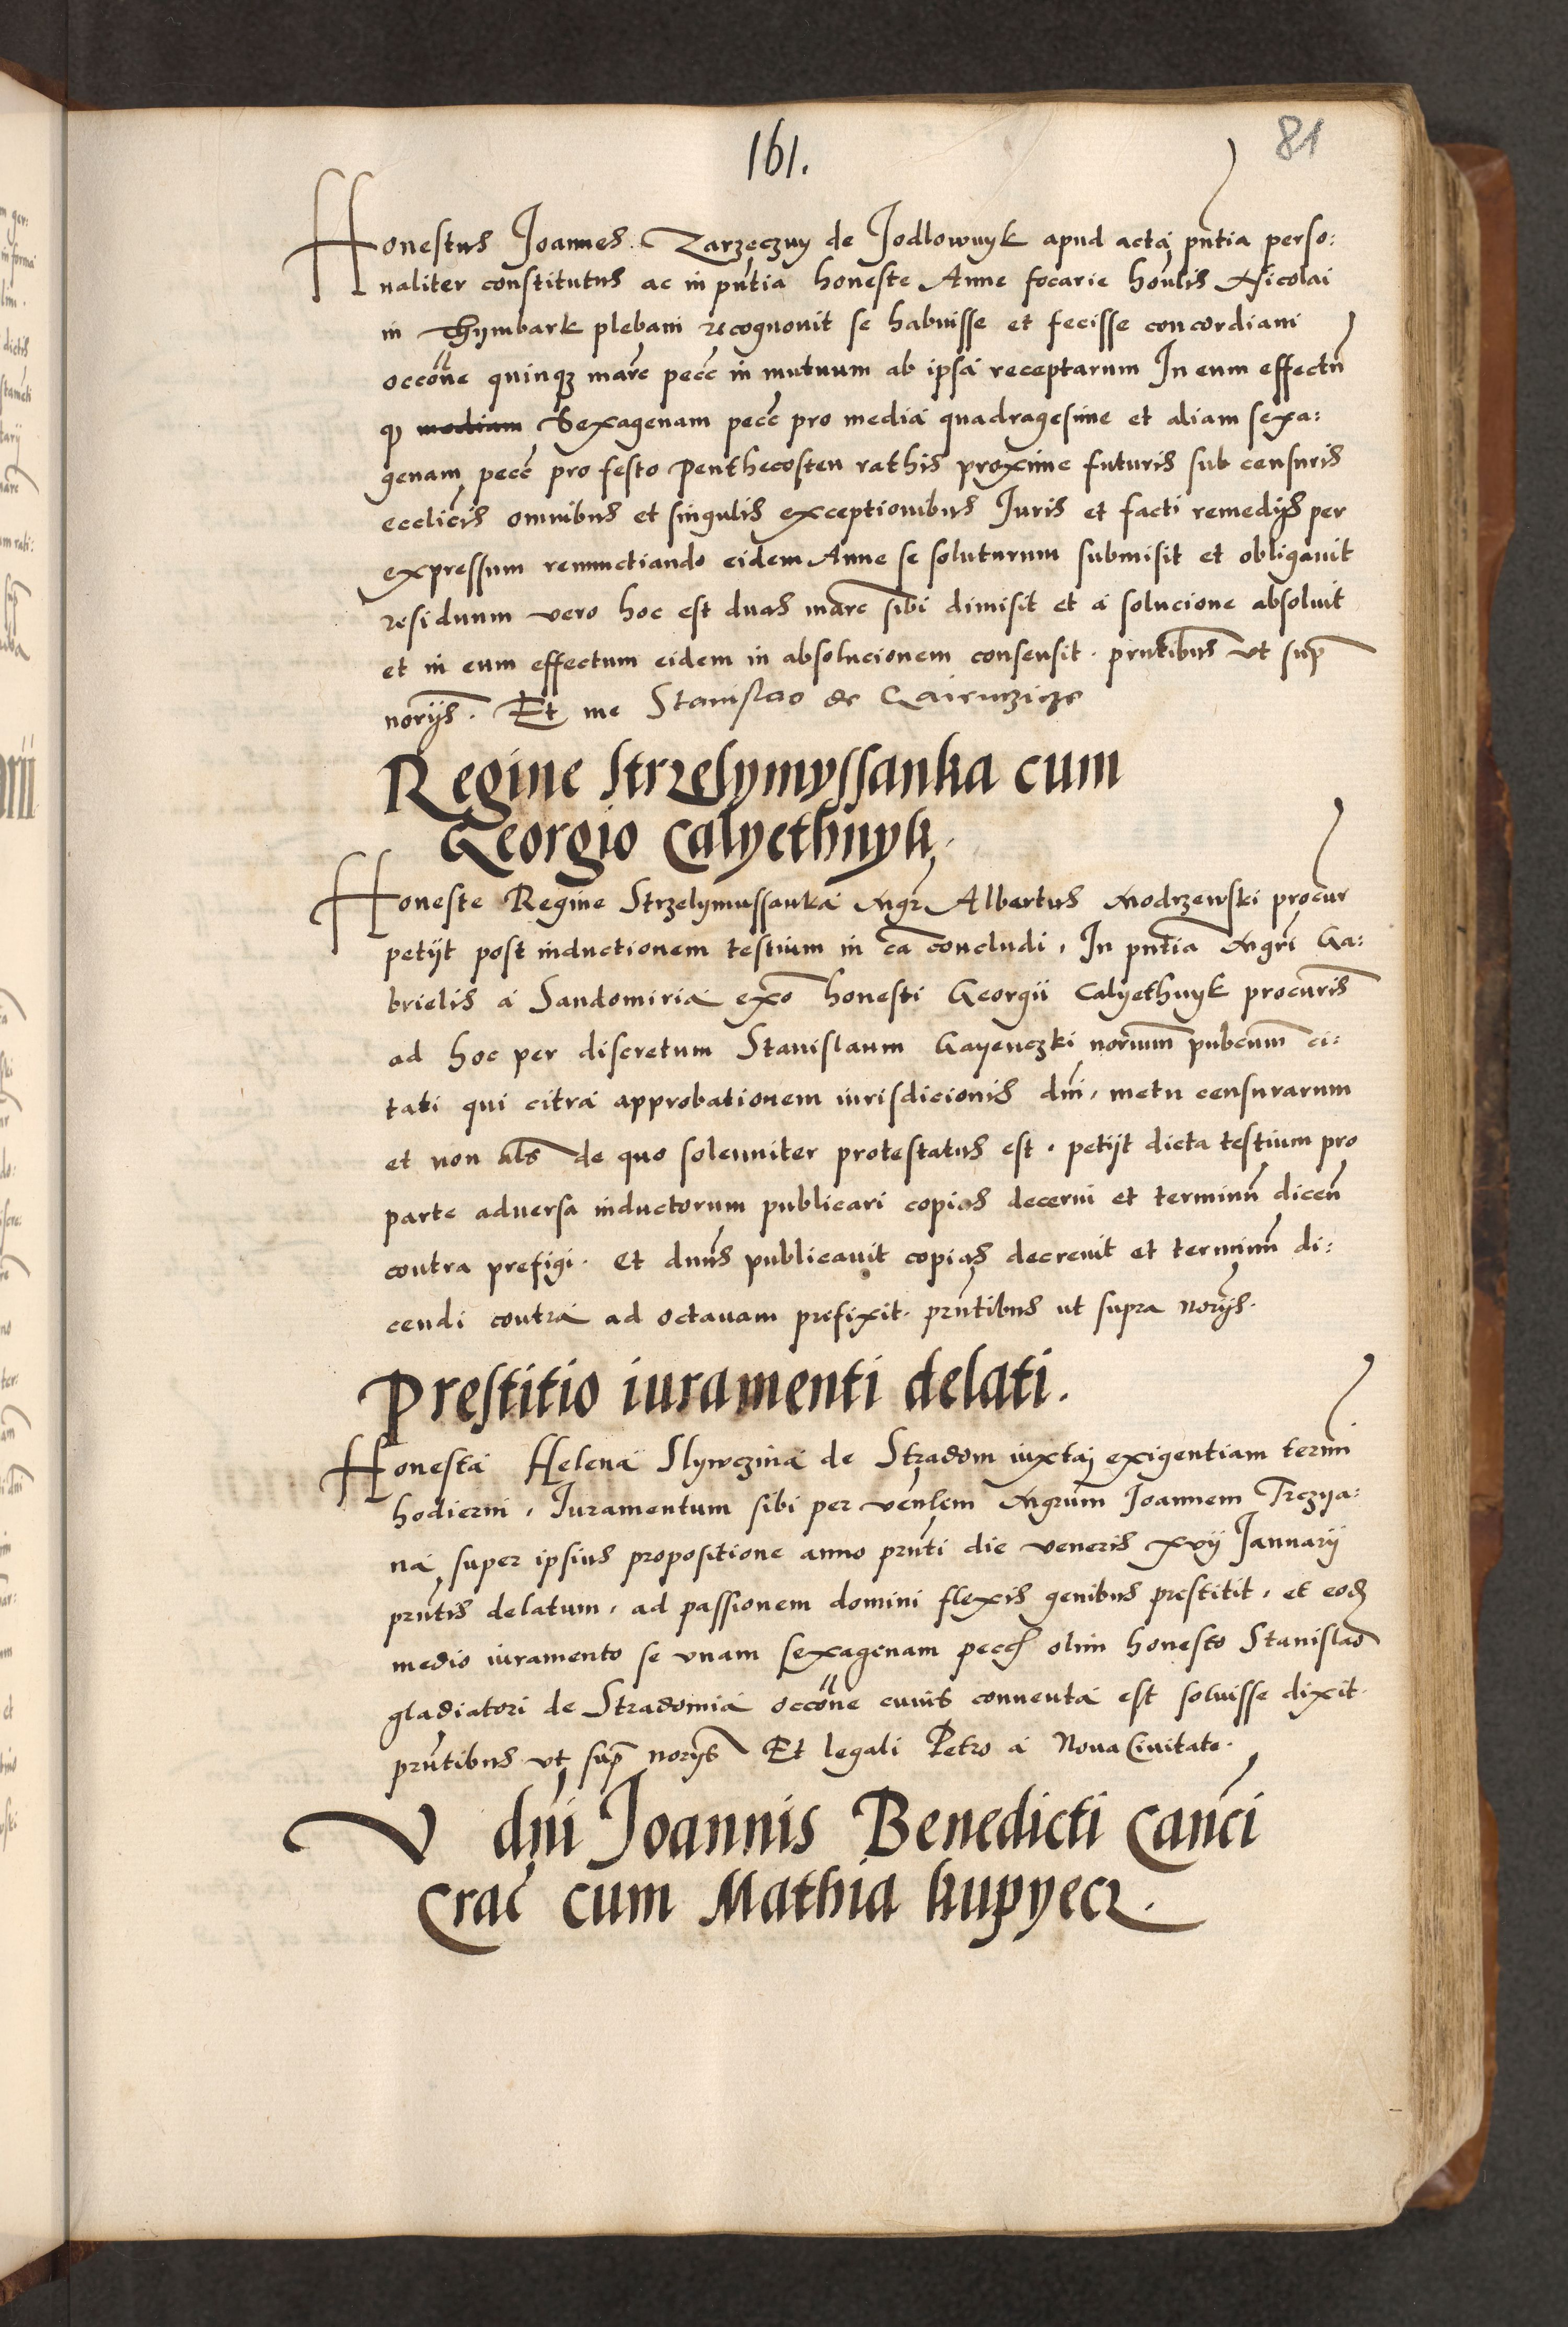 161.
81
Honestus Joannes Zarzeczny de Jodlownyk apud acta pntia perso:
naliter constitutus ac in pntia honeste Anne focarie honlis Nicolai
in Thymbark plebani recognovit se habuisse et fecisse concordiam
occone quinq; marc pecc in mutuum ab ipsa receptarum In eum effectu
q mediam Sexagenam pecc pro media quadragesime et aliam sexa:
genam pecc pro festo Penthecosten rathis proxime futuris sub censuris
ecclicis omnibus et singulis exceptionibus Juris et facti remedijs per
expressum renunctiando eidem Anne se soluturum submisit et obligauit
residuum vero hoc est duas marc sibi dimisit et a solucione absoluit
et in eum effectum eidem in absolucionem consensit. pntibus vt sup
norijs. Et me Stanislao de
Regine Strzelymyssanka cum
Georgio Calyethnyk.
Honeste Regine Strzelymussanka Mgr Albertus Modrzewski procur
petijt post inductionem testium in ca concludi, In pntia Mgri Ga:
brielis a Sandomiria exo honesti Georgii Calyethnyk procuris
ad hoc per discretum Stanislaum Gayenczki norium pubcum ci:
tati qui citra approbationem iurisdicionis dni, metu censurarum
et non als de quo solenniter protestatus est. petijt dicta testium pro
parte adversa inductorum publicari copias decerni et terminu dicen
contra prefigi. Et dnus publicauit copias decreuit et terminu di:
cendi contra ad octauam prefixit. pntibus ut supra norijs.
Prestitio iuramenti delati.
Honesta Helena Slywczina de Stradom iuxta exigentiam termi
hodierni, Juramentum sibi per venlem Mgrum Joannem Trczya:
na super ipsius propositione anno pnti die veneris xvij Januarij
pntis delatum, ad passionem domini flexis genibus prestitit, et eod
medio iuramento se vnam sexagenam pecc olim honesto Stanislao
gladiatori de Stradomia occone cuius conuenta est soluisse dixit.
pntibus vt sup norijs Et legali Petro a Noua Ciuitate.
V dni Joannis Benedicti Canci
Crac cum Mathia kupyecz.